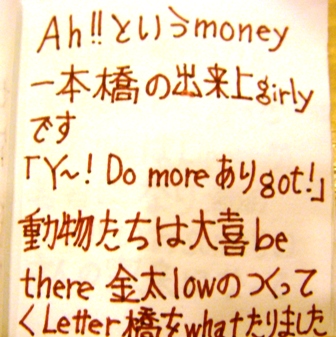 Ah!!というmoney
一本橋の出来上girly
です
「Y~! Do more ありgot!」
動物たちは大喜be
there 金太lowのつくって
くLetter橋をwhatたりました